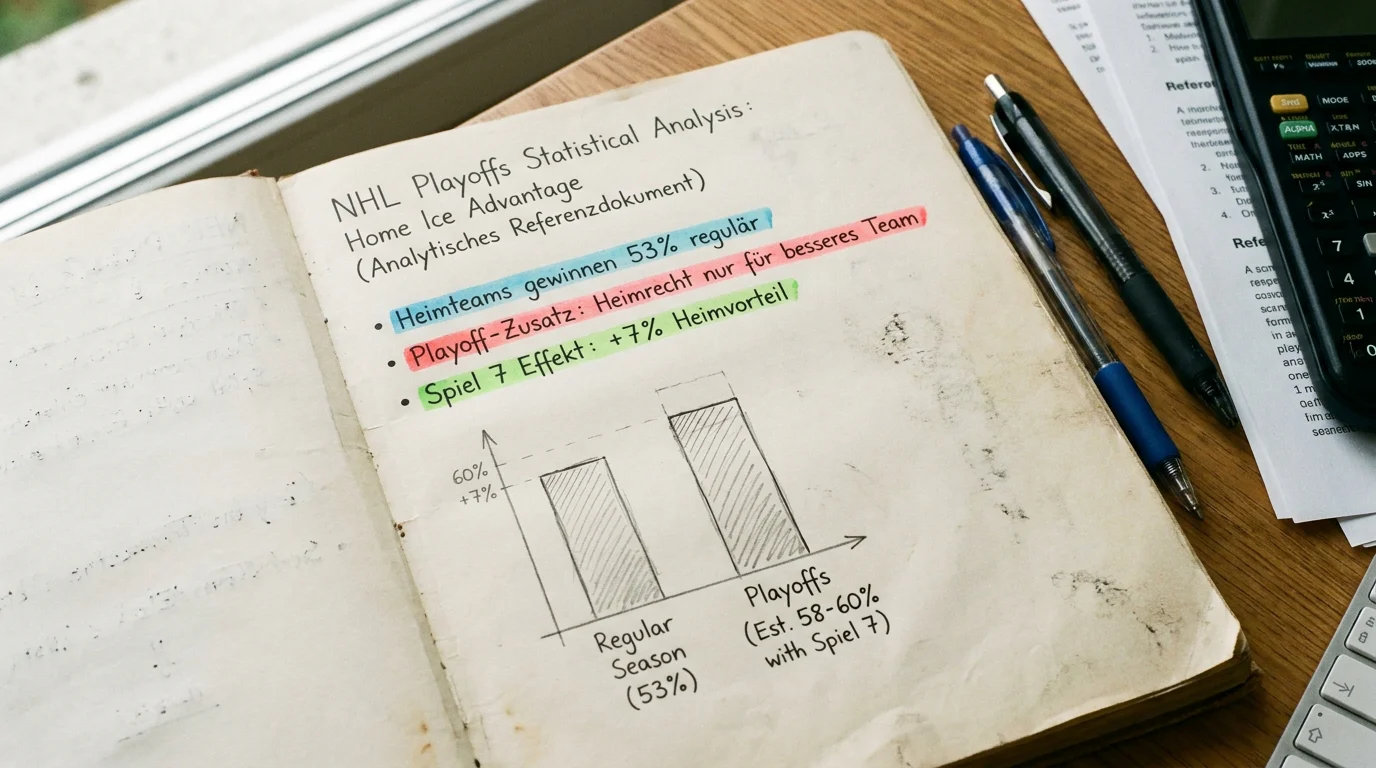 NHL Playoffs Statistical Analysis:
Home Ice Advantage
(Analytisches Referenzdokument)
• Heimteams gewinnen 53% regulär
• Playoff-Zusatz: Heimrecht nur für besseres Team
• Spiel 7 Effekt: +7% Heimvorteil
60%
+7%
Regular
Season
(53%)
Playoffs
(Est. 58-60%
with Spiel 7)
MODE
ALPHA
X,T,R,N
MATH
SIN
7
4
1
0
1.
2.
Refere
2.
3.
4.
Refe